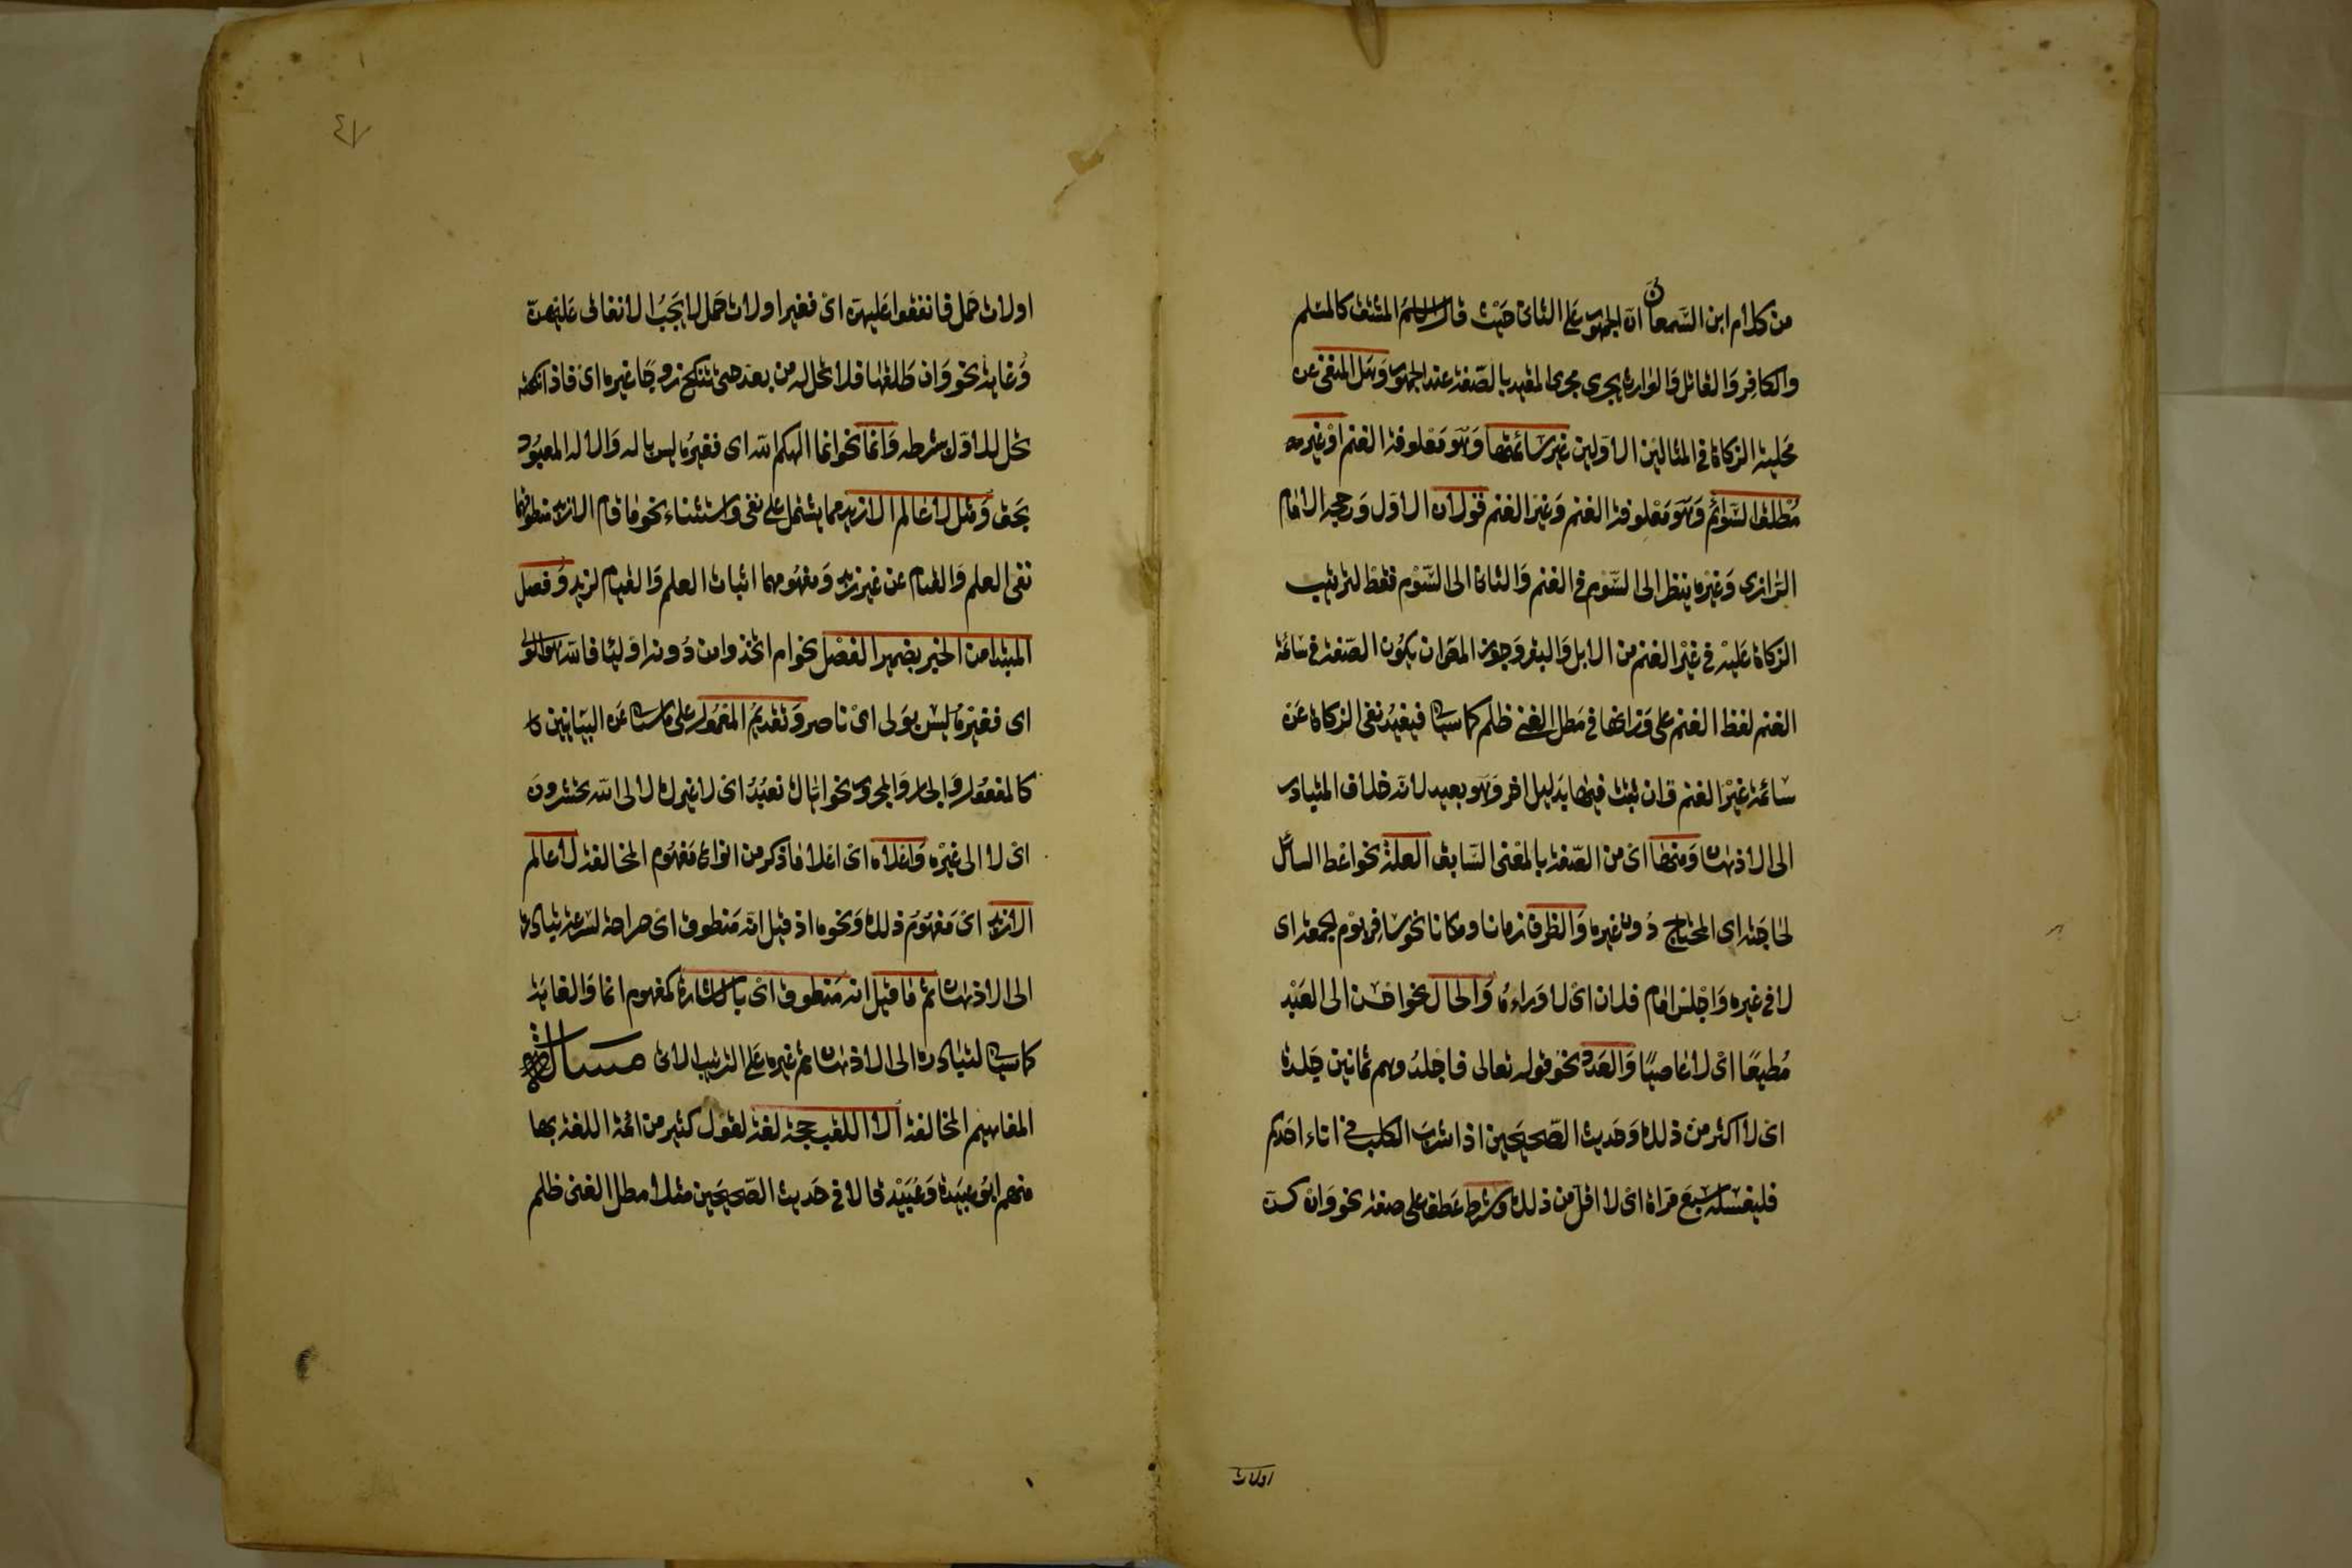 من كلام ابن السمعاني ان الجمهور على الثاني حيث قال الاسم المشتق كالمسلم
والكافر والقاتل والوارث يجرى مجرى المقيد بالصفة عند الجمهور وهل المنفى عن
محلية الزكاة في المثالين الاولين غير سائمتها وهو معلوفة الغنم او غير
مطلق السوائم وهو معلوفة الغنم وغير الغنم قولان الاول ورجحه الامام
الرازى وغيره ينظر الى السوم في الغنم والثاني الى السوم فقط لترتيب
الزكاة عليه في غير الغنم من الابل والبقر وجوز المص ان يكون الصفة في سائمة
الغنم لفظ الغنم على وزانها في مطل الغنى ظلم كما سياتى فيفيد نفى الزكاة عن
سائمة غير الغنم وان ثبتت فيها بدليل اخر وهو بعيد لانه خلاف المتبادر
الى الاذهان ومنها اى من الصفة بالمعنى السابق العلة نحو اعط السائل
لحاجته اى المحتاج دون غيره والظرف زمانا ومكانا نحو سافر يوم الجمعة اى
لا في غيره واجلس امام فلان اى لا وراءه والحال نحو احسن الى العبد
مطيعا اى لا عاصيا والعدد نحو قوله تعالى فاجلدوهم ثمانين جلدة
اى لا اكثر من ذلك وحديث الصحيحين اذا شرب الكلب في اناء احدكم
فليغسله سبع مرات اى لا اقل من ذلك وشرط عطف على صفة نحو وان كن
اولات
٤٧
اولات حمل فانفقوا عليهن اى فغير اولات حمل لا يجب الانفاق عليهن
وغاية نحو وان طلقها فلا تحل له من بعد حتى تنكح زوجا غيره اى فاذا نكحته
تحل للاول بشرطه وانما نحو انما الهكم الله اى فغيره ليس باله والاله المعبود
بحق ومثل لا عالم الا زيد مما يشتمل على نفى واستثناء نحو ما قام الا زيد منطوقهما
نفى العلم والقيام عن غير زيد ومفهومهما اثبات العلم والقيام لزيد وفصل
المبتدا من الخبر بضمير الفصل نحو ام اتخذوا من دونه اولياء فالله هو الولى
اى فغيره ليس بولى اى ناصر وتقديم المعمول على ما سياتى عن البيانيين
كالمفعول والجار والمجرور نحو اياك نعبد اى لا غيرك لالى الله تحشرون
اى لا الى غيره واعلاه اى اعلا ما ذكر من انواع مفهوم المخالفة لا عالم
الا زيد اى مفهوم ذلك ونحوه اذ قيل انه منطوق اى صراحة لسرعة تبادره
الى الاذهان ثم ما قيل انه منطوق اى بالاشارة كمفهوم انما والغاية
كما سياتى لتبادره الى الاذهان ثم غيره على الترتيب الاتى مسالة
المفاهيم المخالفة الا اللقب حجة لغة لقول كثير من ائمة اللغة بها
منهم ابو عبيدة وعبيد قالا في حديث الصحيحين مثلا مطل الغنى ظلم